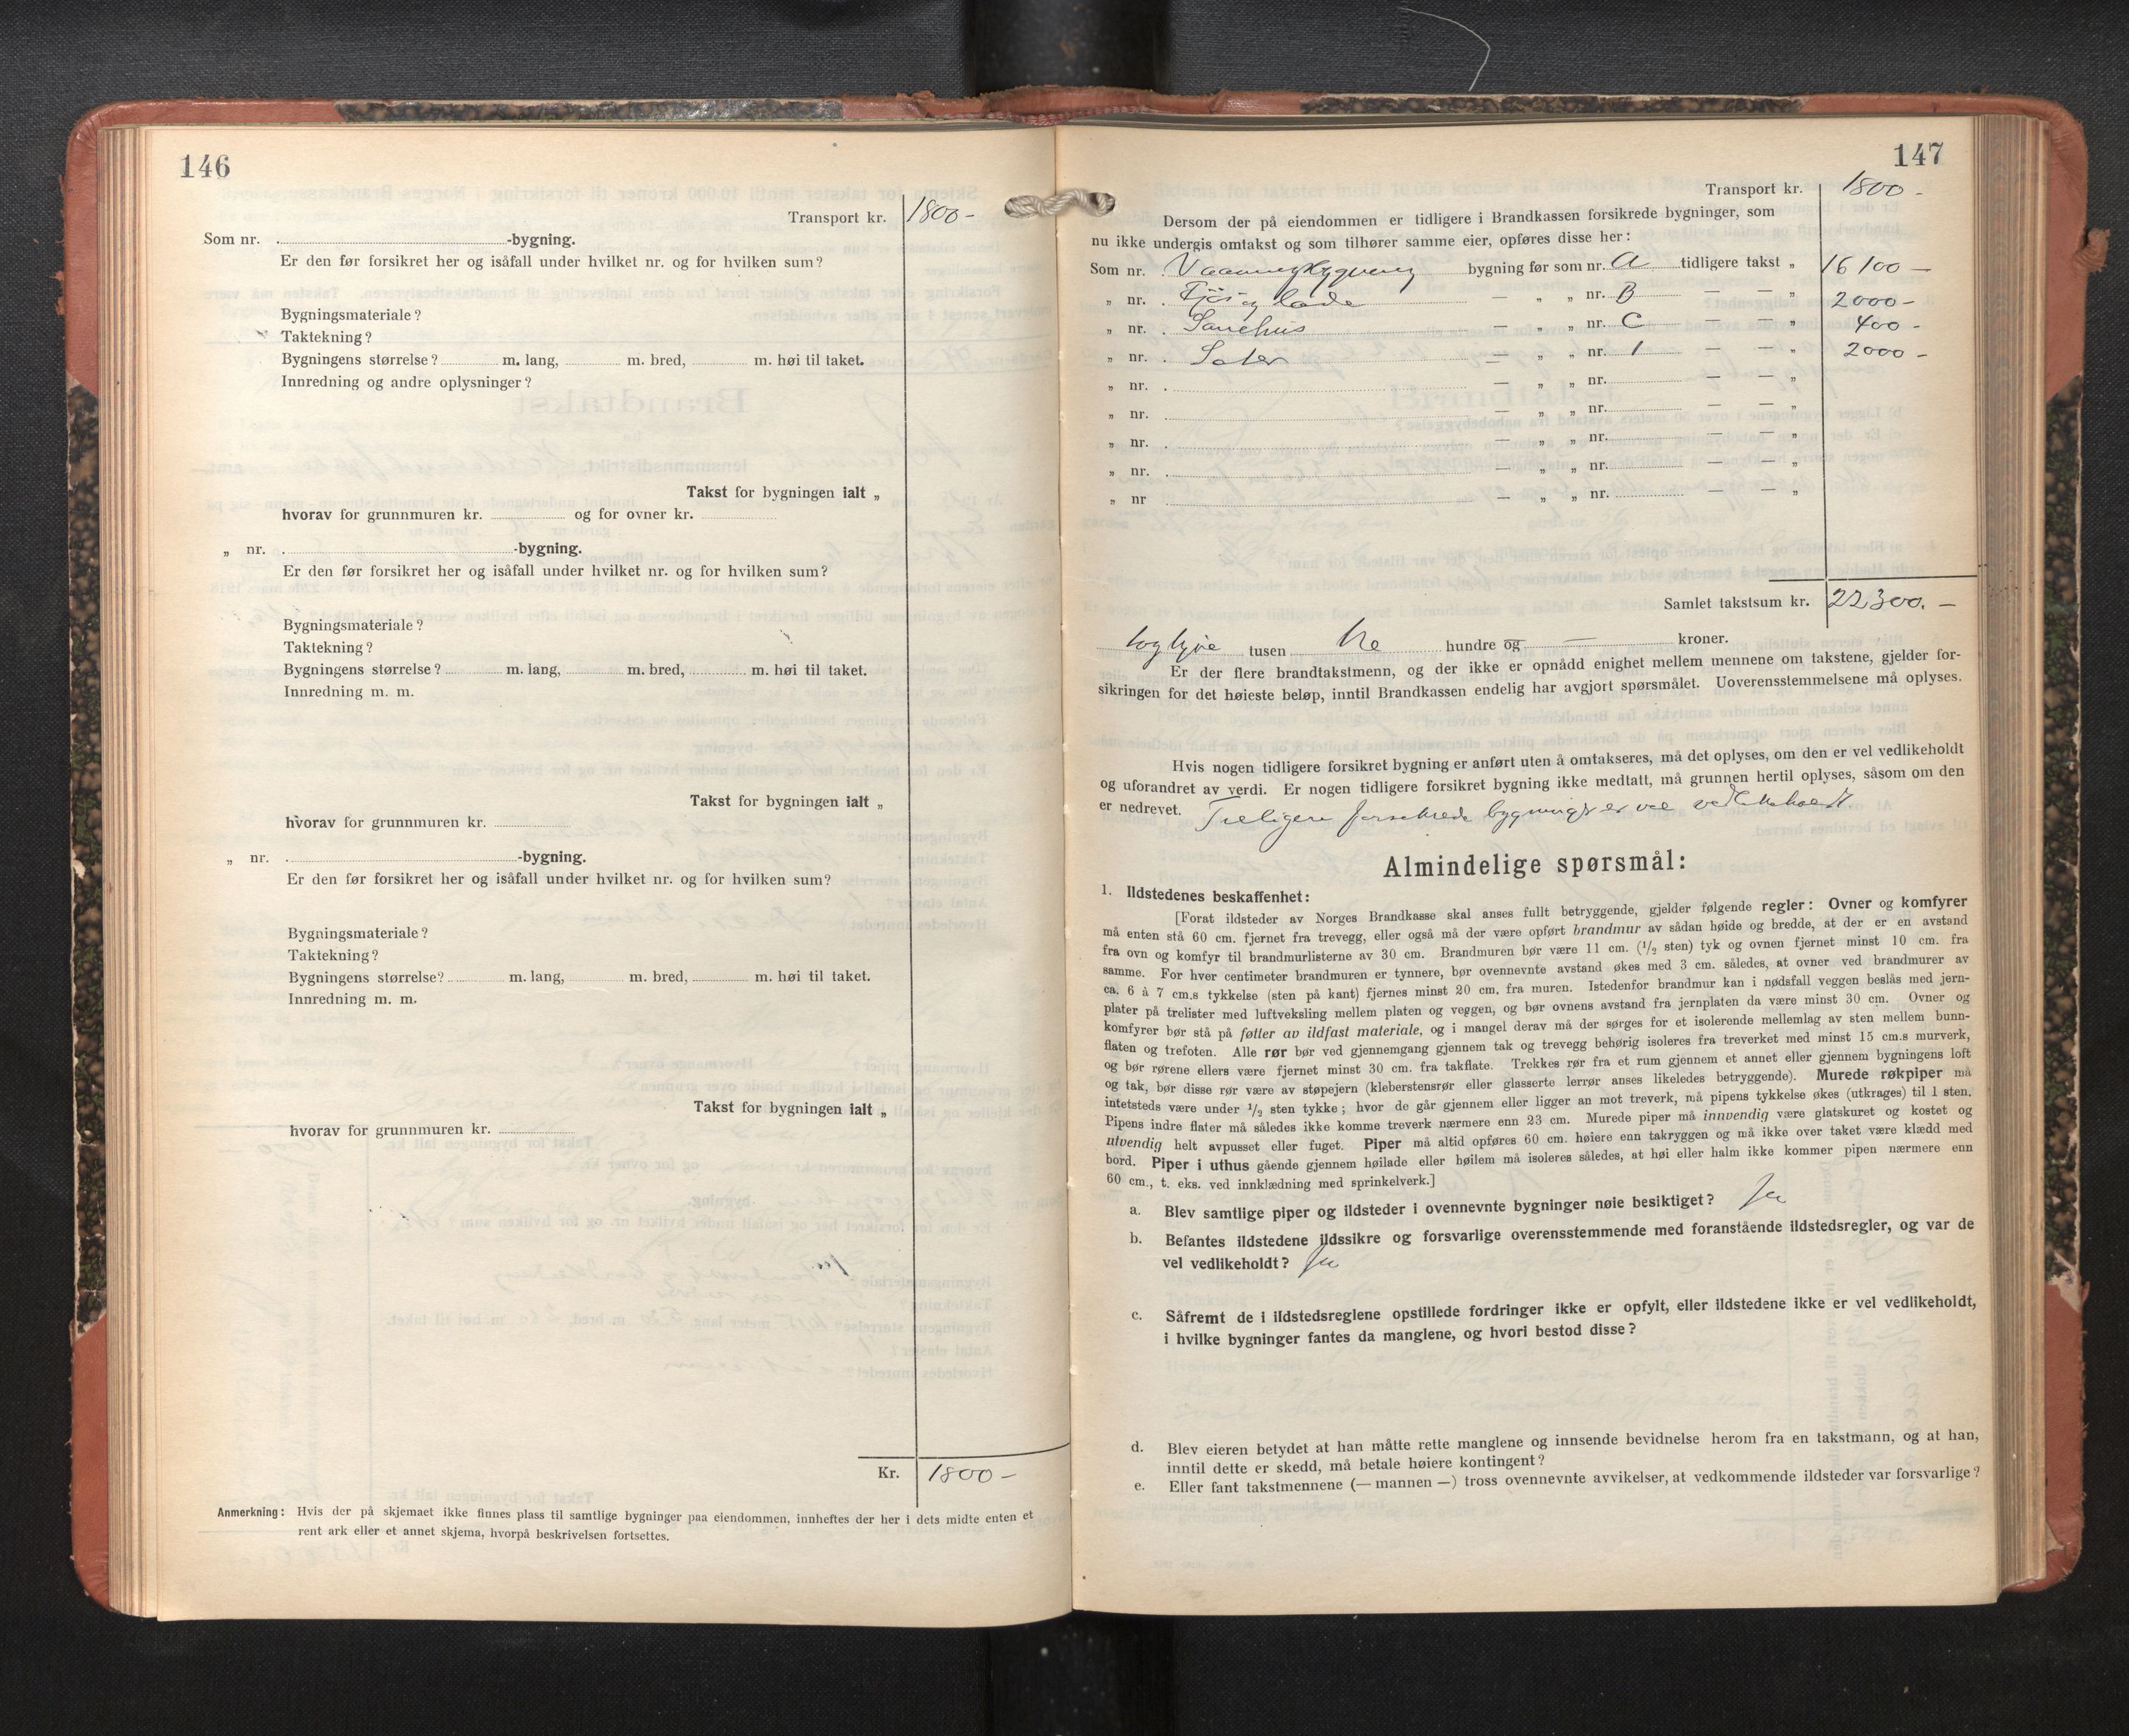 146
Transport kr. 1800-
Som nr. -bygning.
Er den før forsikret her og isåfall under hvilket nr. og for hvilken sum?
Bygningsmateriale?
Taktekning?
Bygningens størrelse? m. lang, m. bred, m. høi til taket.
Innredning og andre oplysninger?
Takst for bygningen ialt „
hvorav for grunnmuren kr. og for ovner kr.
„ nr. -bygning.
Er den før forsikret her og isåfall under hvilket nr. og for hvilken sum?
Bygningsmateriale?
Taktekning?
Bygningens størrelse? m. lang, m. bred, m. høi til taket.
Innredning m. m.
Takst for bygningen ialt „
hvorav for grunnmuren kr.
„ nr. -bygning.
Er den før forsikret her og isåfall under hvilket nr. og for hvilken sum?
Bygningsmateriale?
Taktekning?
Bygningens størrelse? m. lang, m. bred, m. høi til taket.
Innredning m. m.
Takst for bygningen ialt „
hvorav for grunnmuren kr.
Kr. 1800-
Anmerkning: Hvis der på skjemaet ikke finnes plass til samtlige bygninger paa eiendommen, innheftes der her i dets midte enten et
rent ark eller et annet skjema, hvorpå beskrivelsen fortsettes.
147
Transport kr. 1800-
Dersom der på eiendommen er tidligere i Brandkassen forsikrede bygninger, som
nu ikke undergis omtakst og som tilhører samme eier, opføres disse her:
Som nr. Vaaningsbygning bygning før som nr. A tidligere takst „ 16100-
„ nr. Fjøs og lade — „ „ nr. B — — „ 2000-
„ nr. — „ „ nr. C — — „ 400-
„ nr. — „ „ nr. 1 — — „ 2000-
„ nr. — „ „ nr. — — „
„ nr. — „ „ nr. — — „
„ nr. — „ „ nr. — — „
„ nr. — „ „ nr. — — „
„ nr — „ „ nr. — — „
Samlet takstsum kr. 22300.-
togtyve tusen tre hundre og — kroner.
Er der flere brandtakstmenn, og der ikke er opnådd enighet mellem mennene om takstene, gjelder for-
sikringen for det høieste beløp, inntil Brandkassen endelig har avgjort spørsmålet. Uoverensstemmelsene må oplyses.
Hvis nogen tidligere forsikret bygning er anført uten å omtakseres, må det oplyses, om den er vel vedlikeholdt
og uforandret av verdi. Er nogen tidligere forsikret bygning ikke medtatt, må grunnen hertil oplyses, såsom om den
er nedrevet. Tideligere forsekrede bygninger er vel vedlikeholdt.
Almindelige spørsmål:
1. Ildstedenes beskaffenhet:
[Forat ildsteder av Norges Brandkasse skal anses fullt betryggende, gjelder følgende regler: Ovner og komfyrer
må enten stå 60 cm. fjernet fra trevegg, eller også må der være opført brandmur av sådan høide og bredde, at der er en avstand
fra ovn og komfyr til brandmurlisterne av 30 cm. Brandmuren bør være 11 cm. (1/2 sten) tyk og ovnen fjernet minst 10 cm. fra
samme. For hver centimeter brandmuren er tynnere, bør ovennevnte avstand økes med 3 cm. således, at ovner ved brandmurer av
ca. 6 à 7 cm.s tykkelse (sten på kant) fjernes minst 20 cm. fra muren. Istedenfor brandmur kan i nødsfall veggen beslås med jern-
plater på trelister med luftveksling mellem platen og veggen, og bør ovnens avstand fra jernplaten da være minst 30 cm. Ovner og
komfyrer bør stå på føtter av ildfast materiale, og i mangel derav må der sørges for et isolerende mellemlag av sten mellem bunn-
flaten og trefoten. Alle rør bør ved gjennemgang gjennem tak og trevegg behørig isoleres fra treverket med minst 15 cm.s murverk,
og bør rørene ellers være fjernet minst 30 cm. fra takflate. Trekkes rør fra et rum gjennem et annet eller gjennem bygningens loft
og tak, bør disse rør være av støpejern (kleberstensrør eller glasserte lerrør anses likeledes betryggende). Murede røkpiper må
intetsteds være under 1/2 sten tykke; hvor de går gjennem eller ligger an mot treverk, må pipens tykkelse økes (utkrages) til 1 sten.
Pipens indre flater må således ikke komme treverk nærmere enn 23 cm. Murede piper må innvendig være glatskuret og kostet og
utvendig helt avpusset eller fuget. Piper må altid opføres 60 cm. høiere enn takryggen og må ikke over taket være klædd med
bord. Piper i uthus gående gjennem høilade eller høilem må isoleres således, at høi eller halm ikke kommer pipen nærmere enn
60 cm., t. eks. ved innklædning med sprinkelverk.]
a. Blev samtlige piper og ildsteder i ovennevnte bygninger nøie besiktiget? Ja
b. Befantes ildstedene ildssikre og forsvarlige overensstemmende med foranstående ildstedsregler, og var de
vel vedlikeholdt? Ja
c. Såfremt de i ildstedsreglene opstillede fordringer ikke er opfylt, eller ildstedene ikke er vel vedlikeholdt,
i hvilke bygninger fantes da manglene, og hvori bestod disse?
d. Blev eieren betydet at han måtte rette manglene og innsende bevidnelse herom fra en takstmann, og at han,
inntil dette er skedd, må betale høiere kontingent?
e. Eller fant takstmennene (— mannen —) tross ovennevnte avvikelser, at vedkommende ildsteder var forsvarlige?